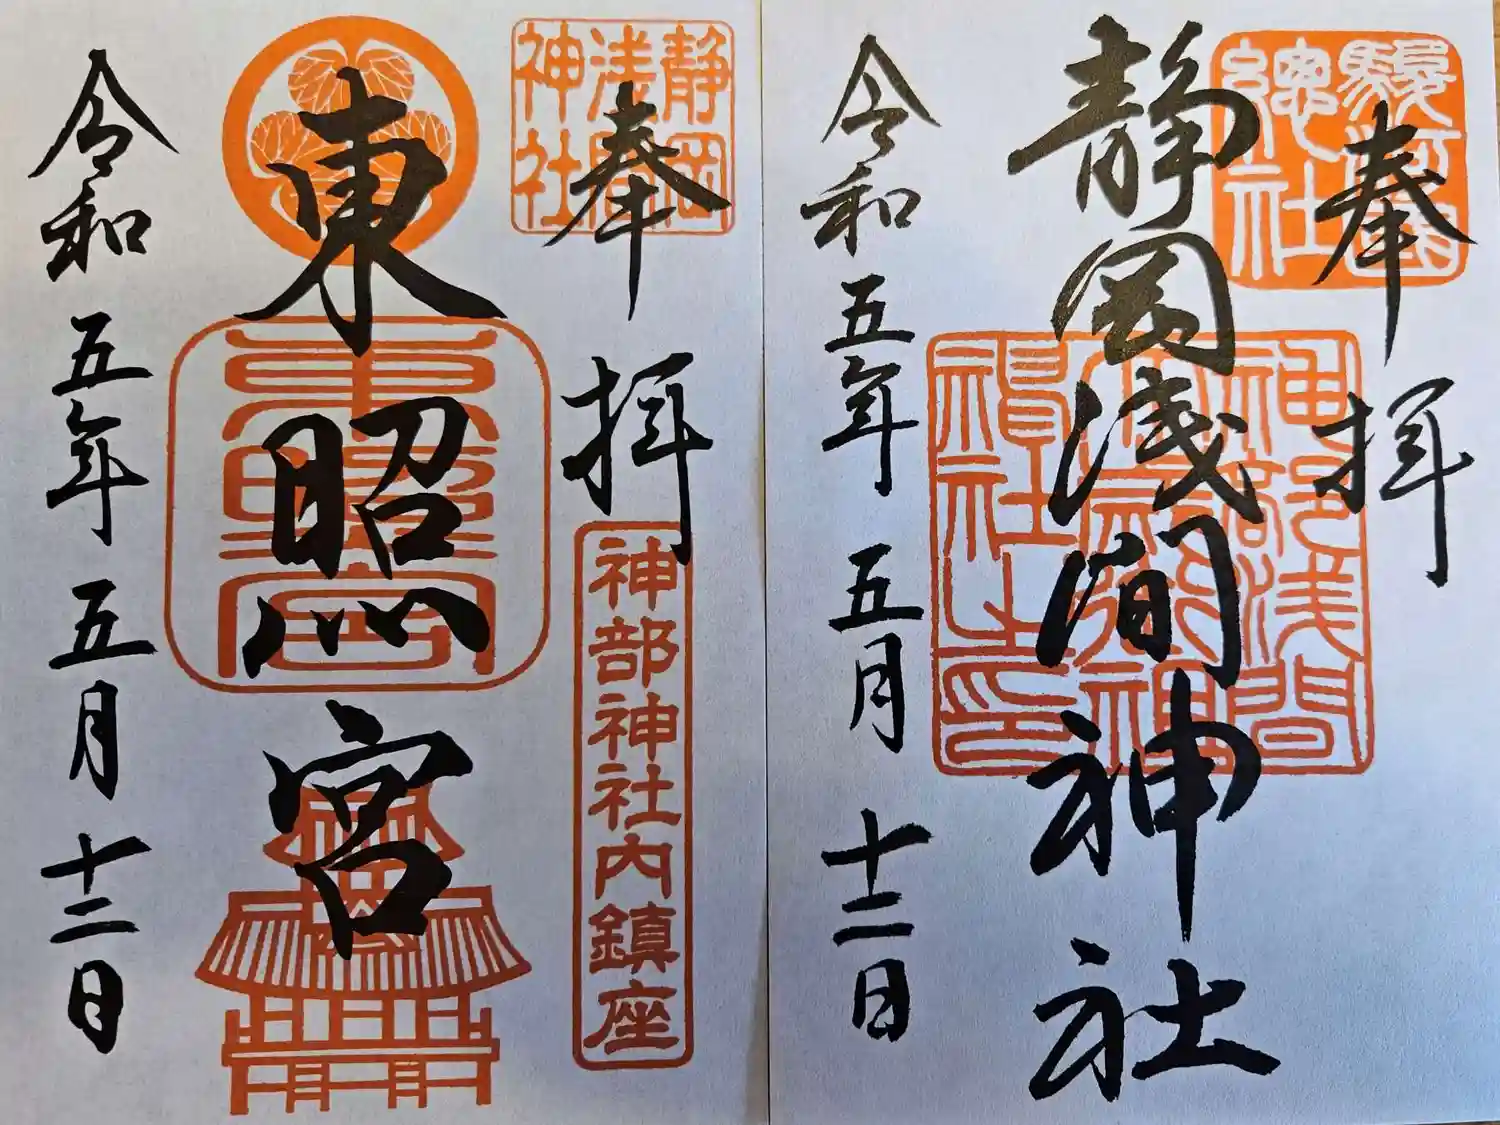 奉拝
駿河國總社
静岡浅間神社
神部浅間大歳御祖神社之印
令和五年五月十二日
奉拝
静岡浅間神社
神部神社内鎮座
東照宮
東照宮
令和五年五月十二日